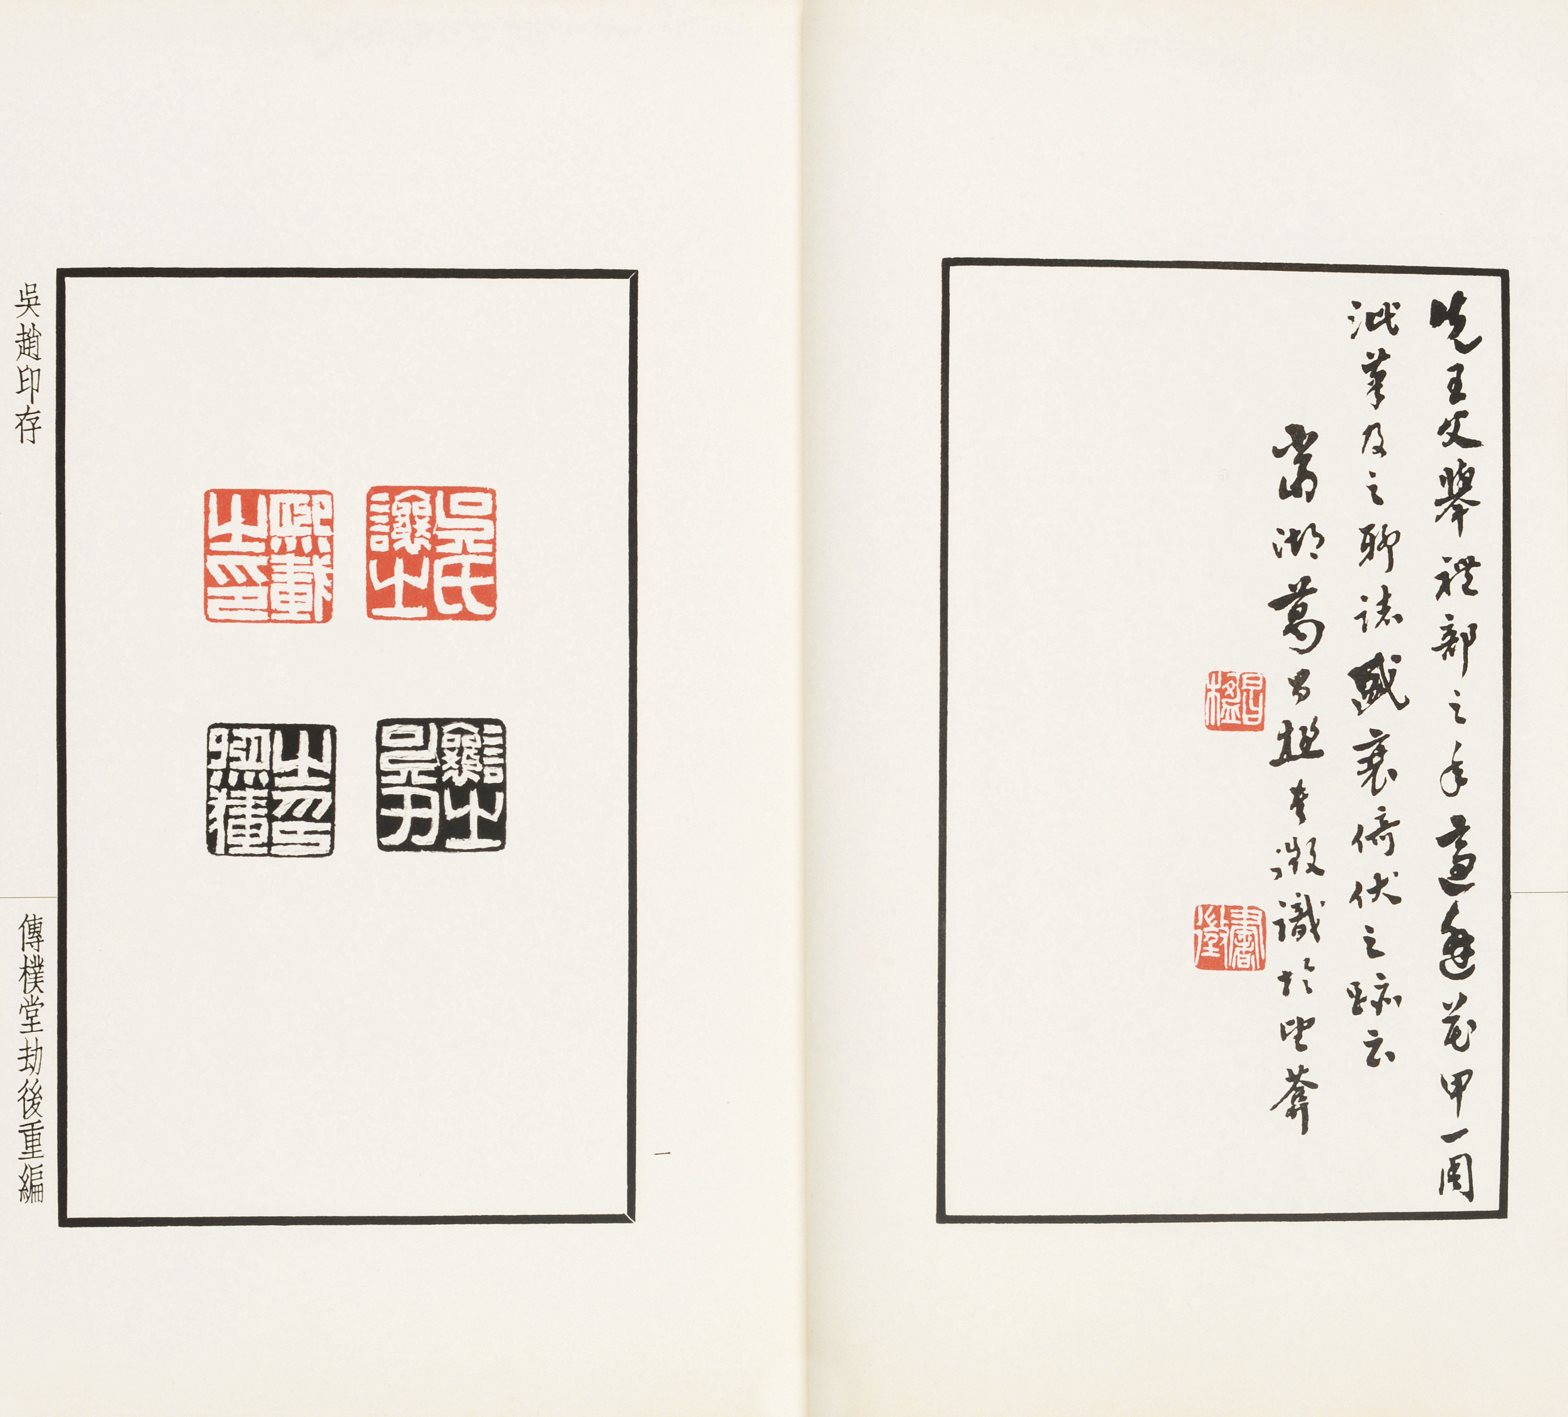 先王父舉禮部之年適逢花甲一周
泚筆及之聊誌盛衰倚伏之跡云
當湖葛昌楹書徵識於望葊
昌楹
書徵
一
吳氏讓之
熙載之印
吳氏讓之
熙載之印
吳趙印存
傳樸堂劫後重編